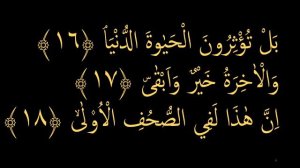 بَلْ تُؤْثِرُونَ الْحَيٰوةَ الدُّنْيَاۖ ﴿١٦﴾
وَالْاٰخِرَةُ خَيْرٌ وَاَبْقٰىۜ ﴿١٧﴾
اِنَّ هٰذَا لَفِي الصُّحُفِ الْاُو۫لٰىۙ ﴿١٨﴾